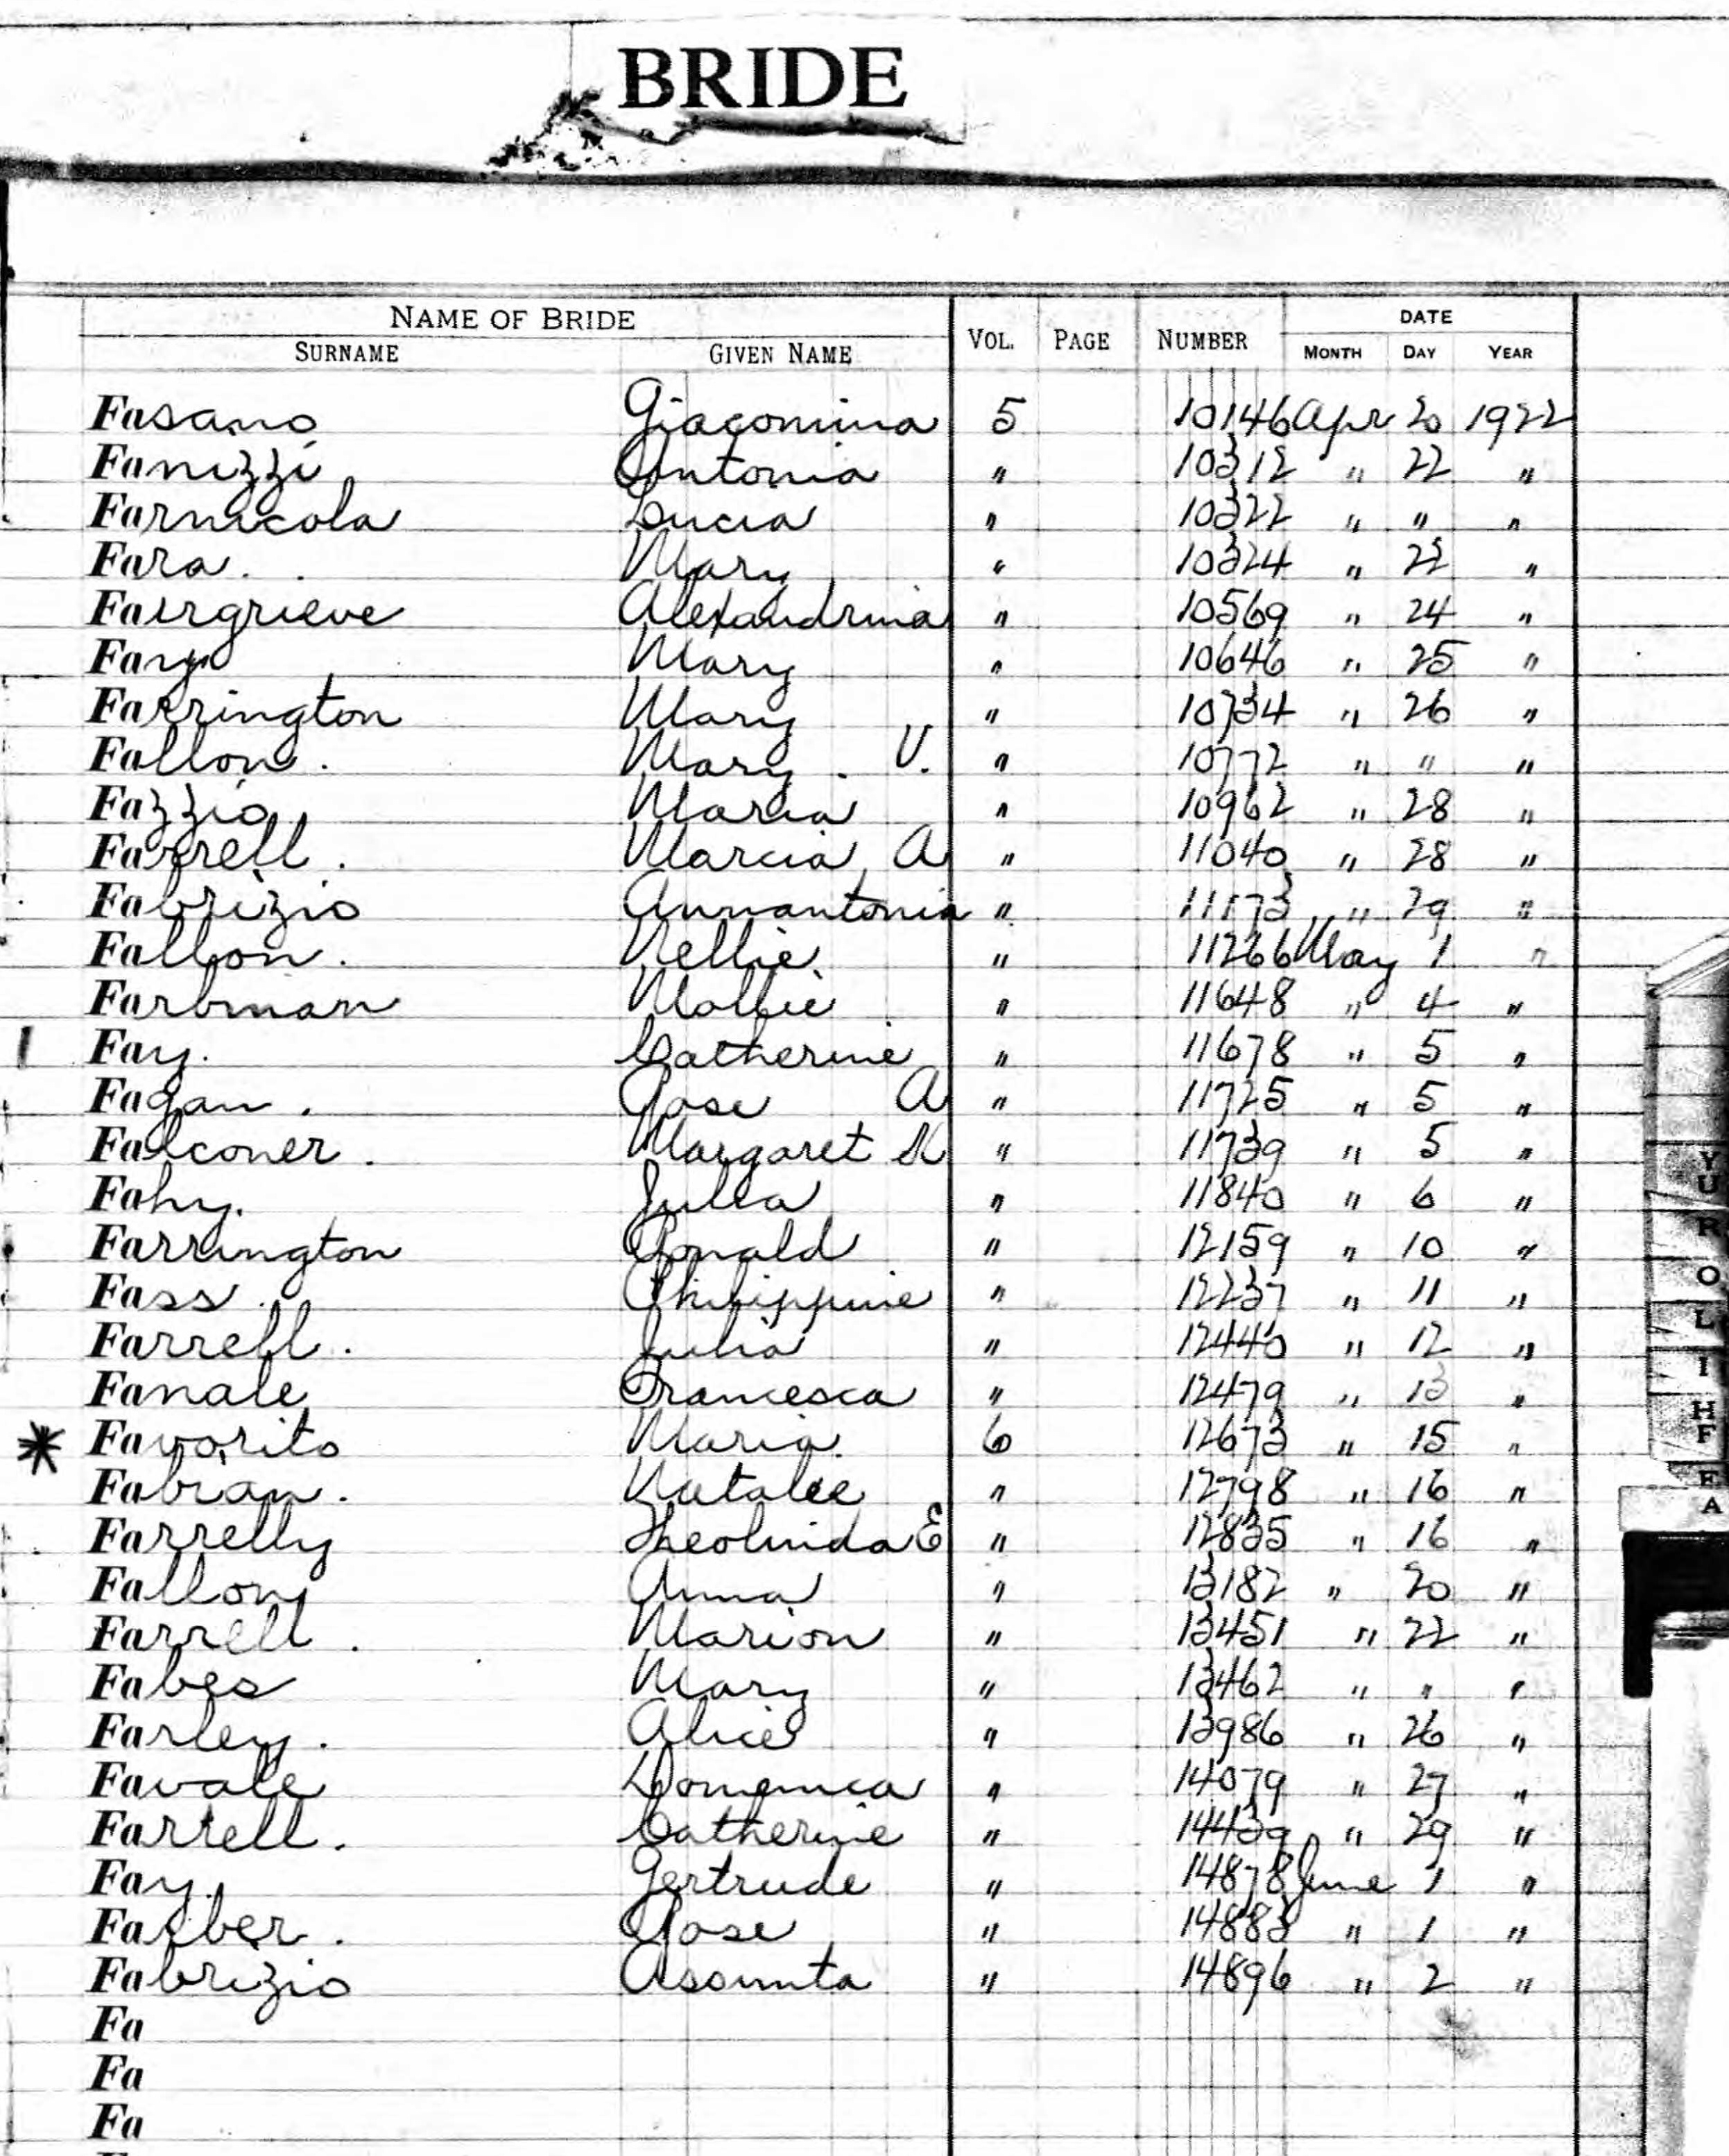 BRIDE
NAME OF BRIDE
SURNAME GIVEN NAME VOL. PAGE NUMBER DATE
MONTH DAY YEAR
Fasano Giacomina 5 10146 Apr 20 1922
Fanizzi Antonia " 10312 " 22 "
Farnicola Lucia " 10322 " " "
Fara. Mary " 10324 " 22 "
Fairgrieve Alexandrina " 10569 " 24 "
Fay Mary " 10646 " 25 "
Farrington Mary " 10734 " 26 "
Fallon. Mary. V. " 10772 " " "
Fazzio Maria " 10962 " 28 "
Farrell. Marcia A " 11040 " 28 "
Fabrizio Annantonia " 11173 " 29 "
Fallon. Nellie. " 11266 May 1 "
Farbman Mollie " 11648 " 4 "
Fay. Catherine " 11678 " 5 "
Fagan. Rose A " 11725 " 5 "
Falconer. Margaret " 11739 " 5 "
Fahy. Julia " 11840 " 6 "
Farrington " 12159 " 10 "
Fass. Philippine " 12237 " 11 "
Farrell. Julia " 12440 " 12 "
Fanale Francesca " 12479 " 13 "
* Favorito Maria. 6 12673 " 15 "
Fabian. Natalie " 12798 " 16 "
Farrelly Theolinda E " 12835 " 16 "
Fallon Anna " 13182 " 20 "
Farrell. Marion " 13451 " 22 "
Fabes Mary " 13462 " " "
Farley. Alice " 13986 " 26 "
Favale Domenica " 14079 " 27 "
Farrell. Catherine " 14439 " 29 "
Fay. Gertrude " 14878 June 1 "
Farber. Rose " 14883 " 1 "
Fabrizio Assunta " 14896 " 2 "
Fa
Fa
Fa
Y
U
R
O
L
I
H
F
E
A